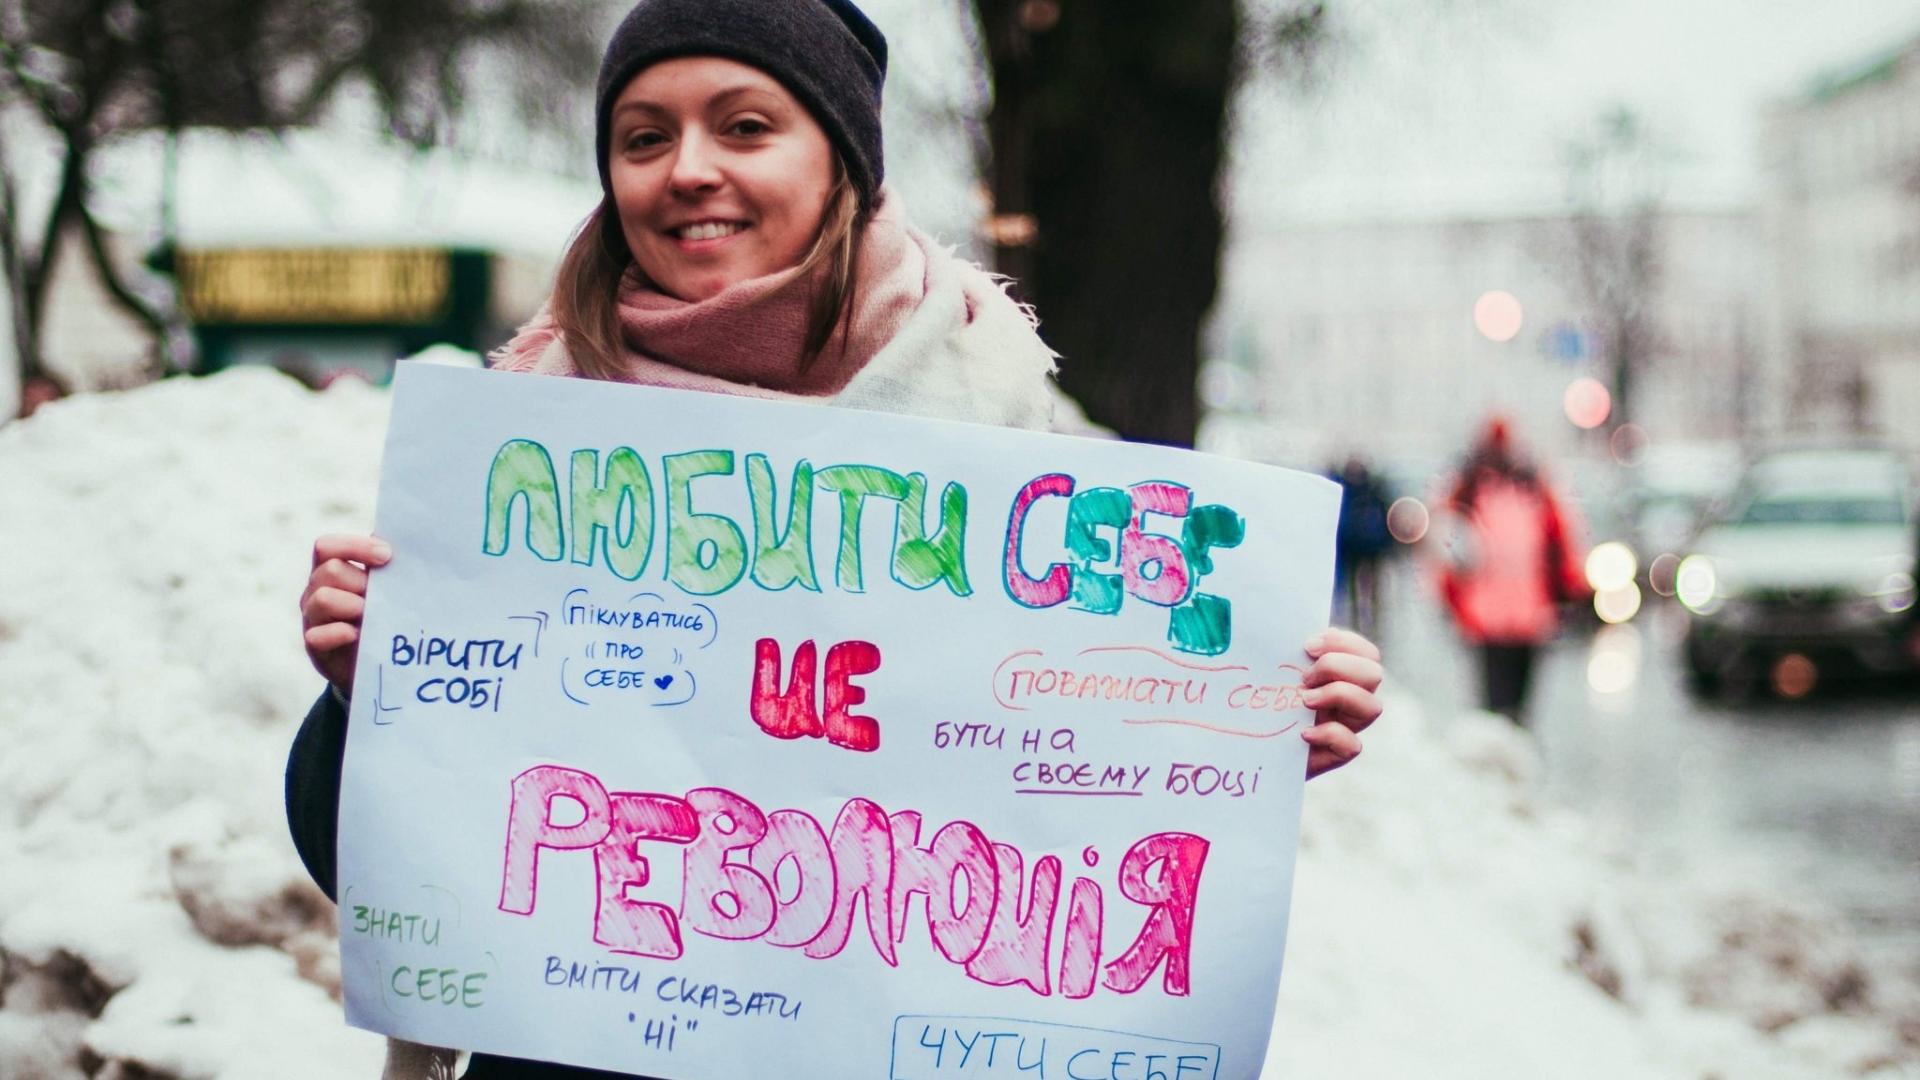 ЛЮБИТИ СЕБЕ
ВІРИТИ
СОБІ
ПІКЛУВАТИСЬ
ПРО
СЕБЕ
ЦЕ
ПОВАЖАТИ СЕБЕ
БУТИ НА
СВОЄМУ БОЦІ
РЕВОЛЮЦІЯ
ЗНАТИ
СЕБЕ
ВМІТИ СКАЗАТИ
"НІ"
ЧУТИ СЕБЕ